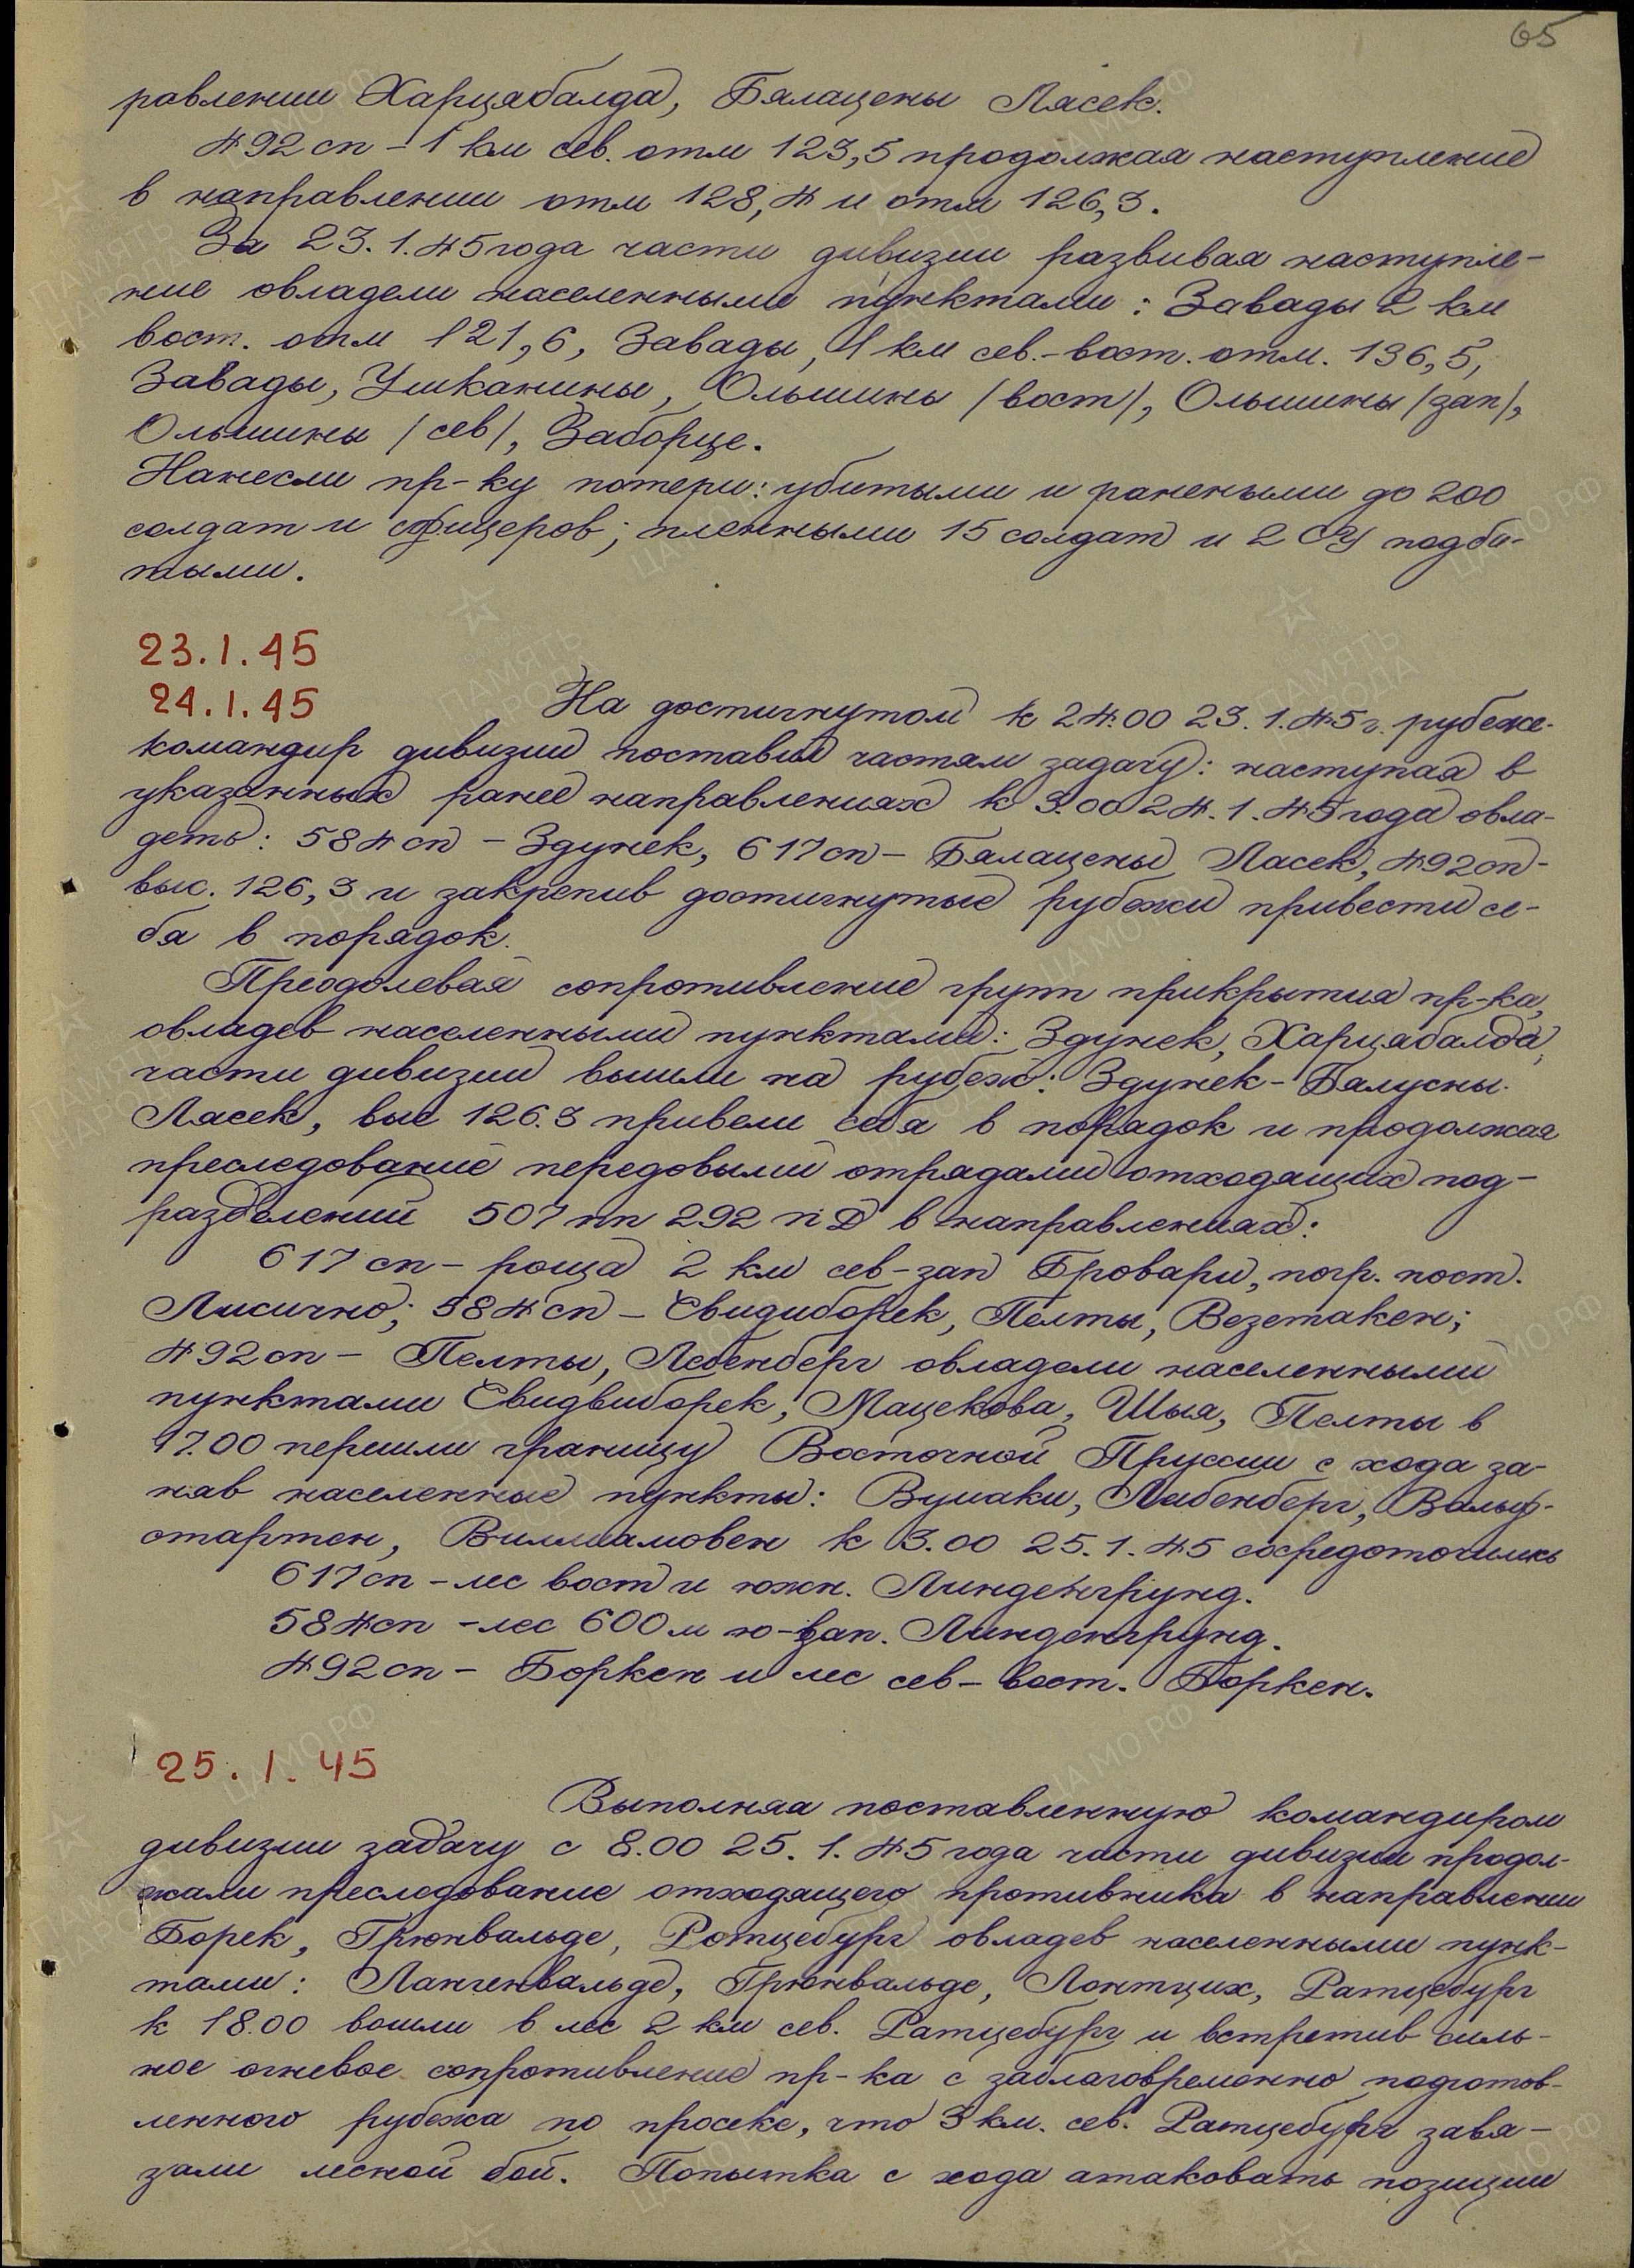 65
равлении Харцябалда, Бялацены Лясек.
492 сп – 1 км сев. отм 123,5 продолжая наступление
в направлении отм 128,4 и отм 126,3.
За 23.1.45 года части дивизии развивая наступле-
ние овладели населенными пунктами: Завады 2 км
вост. отм 121,6, Завады, 1 км сев.-вост. отм. 136,5,
Завады, Ушканины, Ольшины /вост/, Ольшины /зап/,
Ольшины /сев/, Заборце.
Нанесли пр-ку потери: убитыми и ранеными до 200
солдат и офицеров; пленными 15 солдат и 2 СУ подби-
тыми.
23.1.45
24.1.45
На достигнутом к 24.00 23.1.45 г. рубеже
командир дивизии поставил частям задачу: наступая в
указанных ранее направлениях к 3.00 24.1.45 года овла-
деть: 584 сп – Здунек, 617 сп – Бялацены Лясек, 492 сп –
выс. 126,3 и закрепив достигнутые рубежи привести се-
бя в порядок.
Преодолевая сопротивление групп прикрытия пр-ка,
овладев населенными пунктами: Здунек, Харцябалда,
части дивизии вышли на рубеж: Здунек – Бялусны
Лясек, выс 126.3 привели себя в порядок и продолжая
преследование передовыми отрядами отходящих под-
разделений 507 пп 292 пД в направлениях:
617 сп – роща 2 км сев-зап Бровари, погр. пост.
Лисично; 584 сп – Свидиборек, Пелты, Везетакен;
492 сп – Пелты, Лебенберг овладели населенными
пунктами Свидвиборек, Мацекова, Шыя, Пелты в
17.00 перешли границу Восточной Пруссии с хода за-
няв населенные пункты: Вуяки, Либенберг, Вальд-
стартен, Виллиамовен к 3.00 25.1.45 сосредоточились
617 сп – лес вост и южн. Линденгрунд.
584 сп – лес 600 м ю-зап. Линденгрунд.
492 сп – Боркен и лес сев-вост. Боркен.
25.1.45
Выполняя поставленную командиром
дивизии задачу с 8.00 25.1.45 года части дивизии продол-
жали преследование отходящего противника в направлении
Борек, Грюнвальде, Ротцебург овладев населенными пунк-
тами: Лангенвальде, Грюнвальде, Лонтцих, Ратцебург
к 18.00 вошли в лес 2 км сев. Ратцебург и встретив силь-
ное огневое сопротивление пр-ка с заблаговременно подготов-
ленного рубежа по просеке, что 3 км. сев. Ратцебург завя-
зали лесной бой. Попытка с хода атаковать позиции